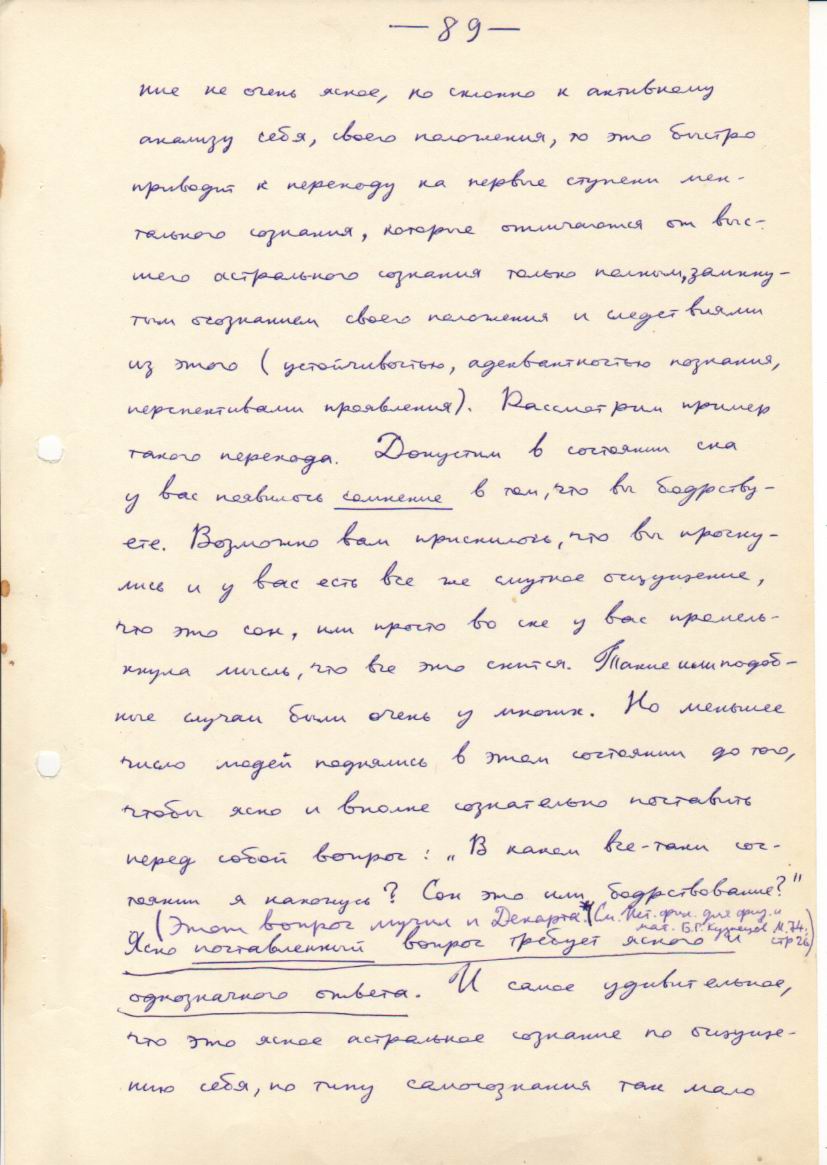 — 89 —
ние не очень ясное, но склонно к активному
анализу себя, своего положения, то это быстро
приводит к переходу на первые ступени мен-
тального сознания, которые отличаются от выс-
шего астрального сознания только полным, замкну-
тым осознанием своего положения и следствиями
из этого (устойчивостью, адекватностью познания,
перспективами проявления). Рассмотрим пример
такого перехода. Допустим в состоянии сна
у вас появилось сомнение в том, что вы бодрству-
ете. Возможно вам приснилось, что вы просну-
лись и у вас есть все же смутное ощущение,
что это сон, или просто во сне у вас промель-
кнула мысль, что все это снится. Такие или подоб-
ные случаи были очень у многих. Но меньшее
число людей поднялись в этом состоянии до того,
чтобы ясно и вполне сознательно поставить
перед собой вопрос: „В каком все-таки сос-
тоянии я нахожусь? Сон это или бодрствование?"
(Этот вопрос мучил и Декарта.* (См. Ист. фил. для физ. и
мат. Б.Г. Кузнецов М. 74.
стр 26)
Ясно поставленный вопрос требует ясного и
однозначного ответа. И самое удивительное,
что это ясное астральное сознание по ощуще-
нию себя, по типу самосознания так мало